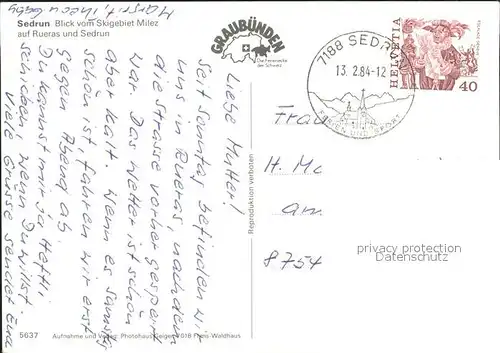 Sedrun Blick vom Skigebiet Milez
auf Rueras und Sedrun
GRAUBÜNDEN
Die Ferienecke
der Schweiz
7188 SEDR
13. 2.84-12
FERIEN UND SPORT
HELVETIA
40
Liebe Mutter!
Seit Sonntag befinden wir
uns in Rueras, nachdem
die Strasse vorher gesperrt
war. Das Wetter ist schön
aber kalt. Wenn es Samstg
schön ist fahren wir erst
gegen Abend ab.
Du kannst mir ja Heftli
schicken, wenn Du willst.
Viele Grüsse sendet Euch
Margrit,
Frau
H. Mc
am
8754
privacy protection
Datenschutz
Reproduktion verboten
5637
Aufnahme und Verlag: Photohaus Geiger, 7018 Flims-Waldhaus